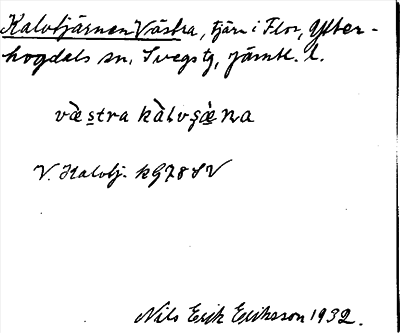 Kalvtjärnen Västra, tjärn i Flor, Ytter-
hogdals sn, Svegs tg, Jämtl. l.
væ̀stra kàlvʂæ̀ṇa
V. Kalvtj. kg 78 SV
Nils Erik Eriksson 1932.